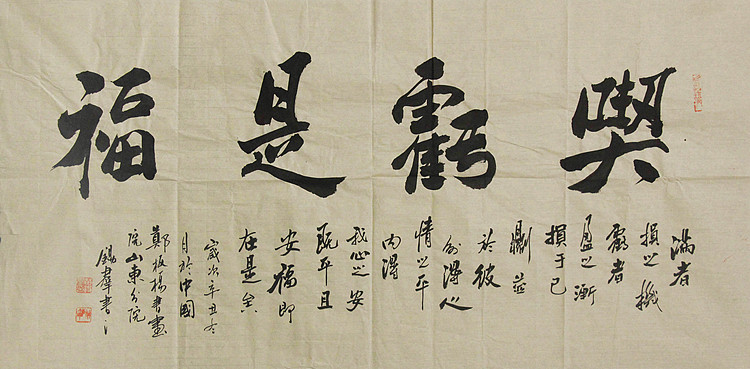 喫虧是福
滿者
損之機
虧者
盈之漸
損于己
則益
於彼
外得人
情之平
内得
我心之安
既平且
安福即
在是矣
歲次辛丑冬
月於中國
鄭板橋書畫
院山東分院
書